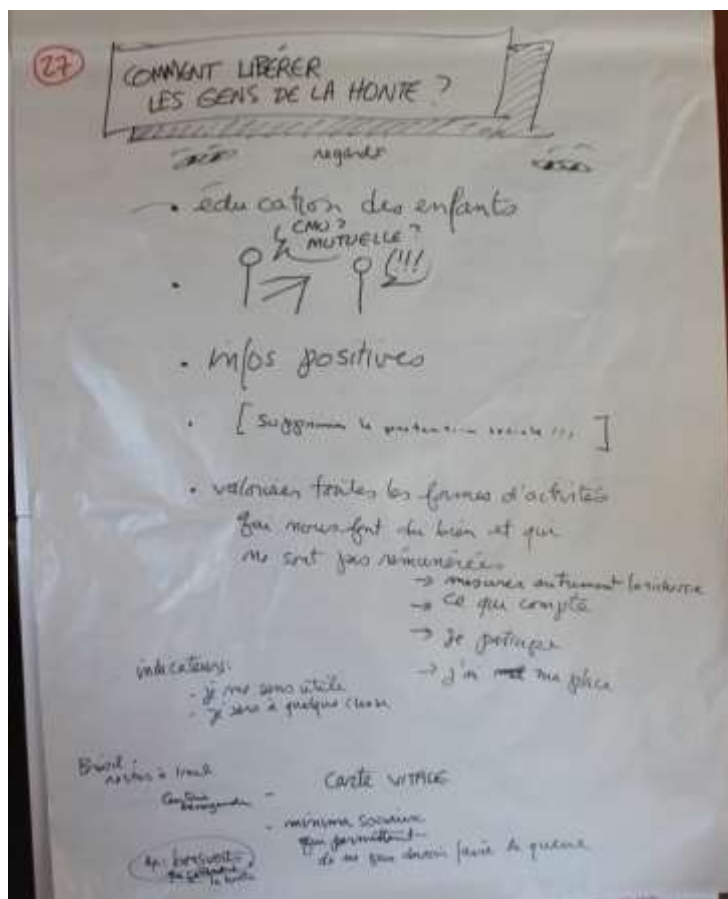 27
COMMENT LIBÉRER
LES GENS DE LA HONTE ?
regards
• éducation des enfants
CMU ?
MUTUELLE ?
!!!
• infos positives
• [ Supprimer la protection sociale !!! ]
• valoriser toutes les formes d'activités
qui nous font du bien et qui
ne sont pas rémunérées
→ mesurer autrement la richesse
→ ce qui compte
→ je participe
→ j'ai ma place
indicateurs:
- je me sens utile
- je sers à quelque chose
Brésil :
CARTE VITALE
- minima sociaux
qui permettent
de ne pas devoir faire la queue
ex:
la honte